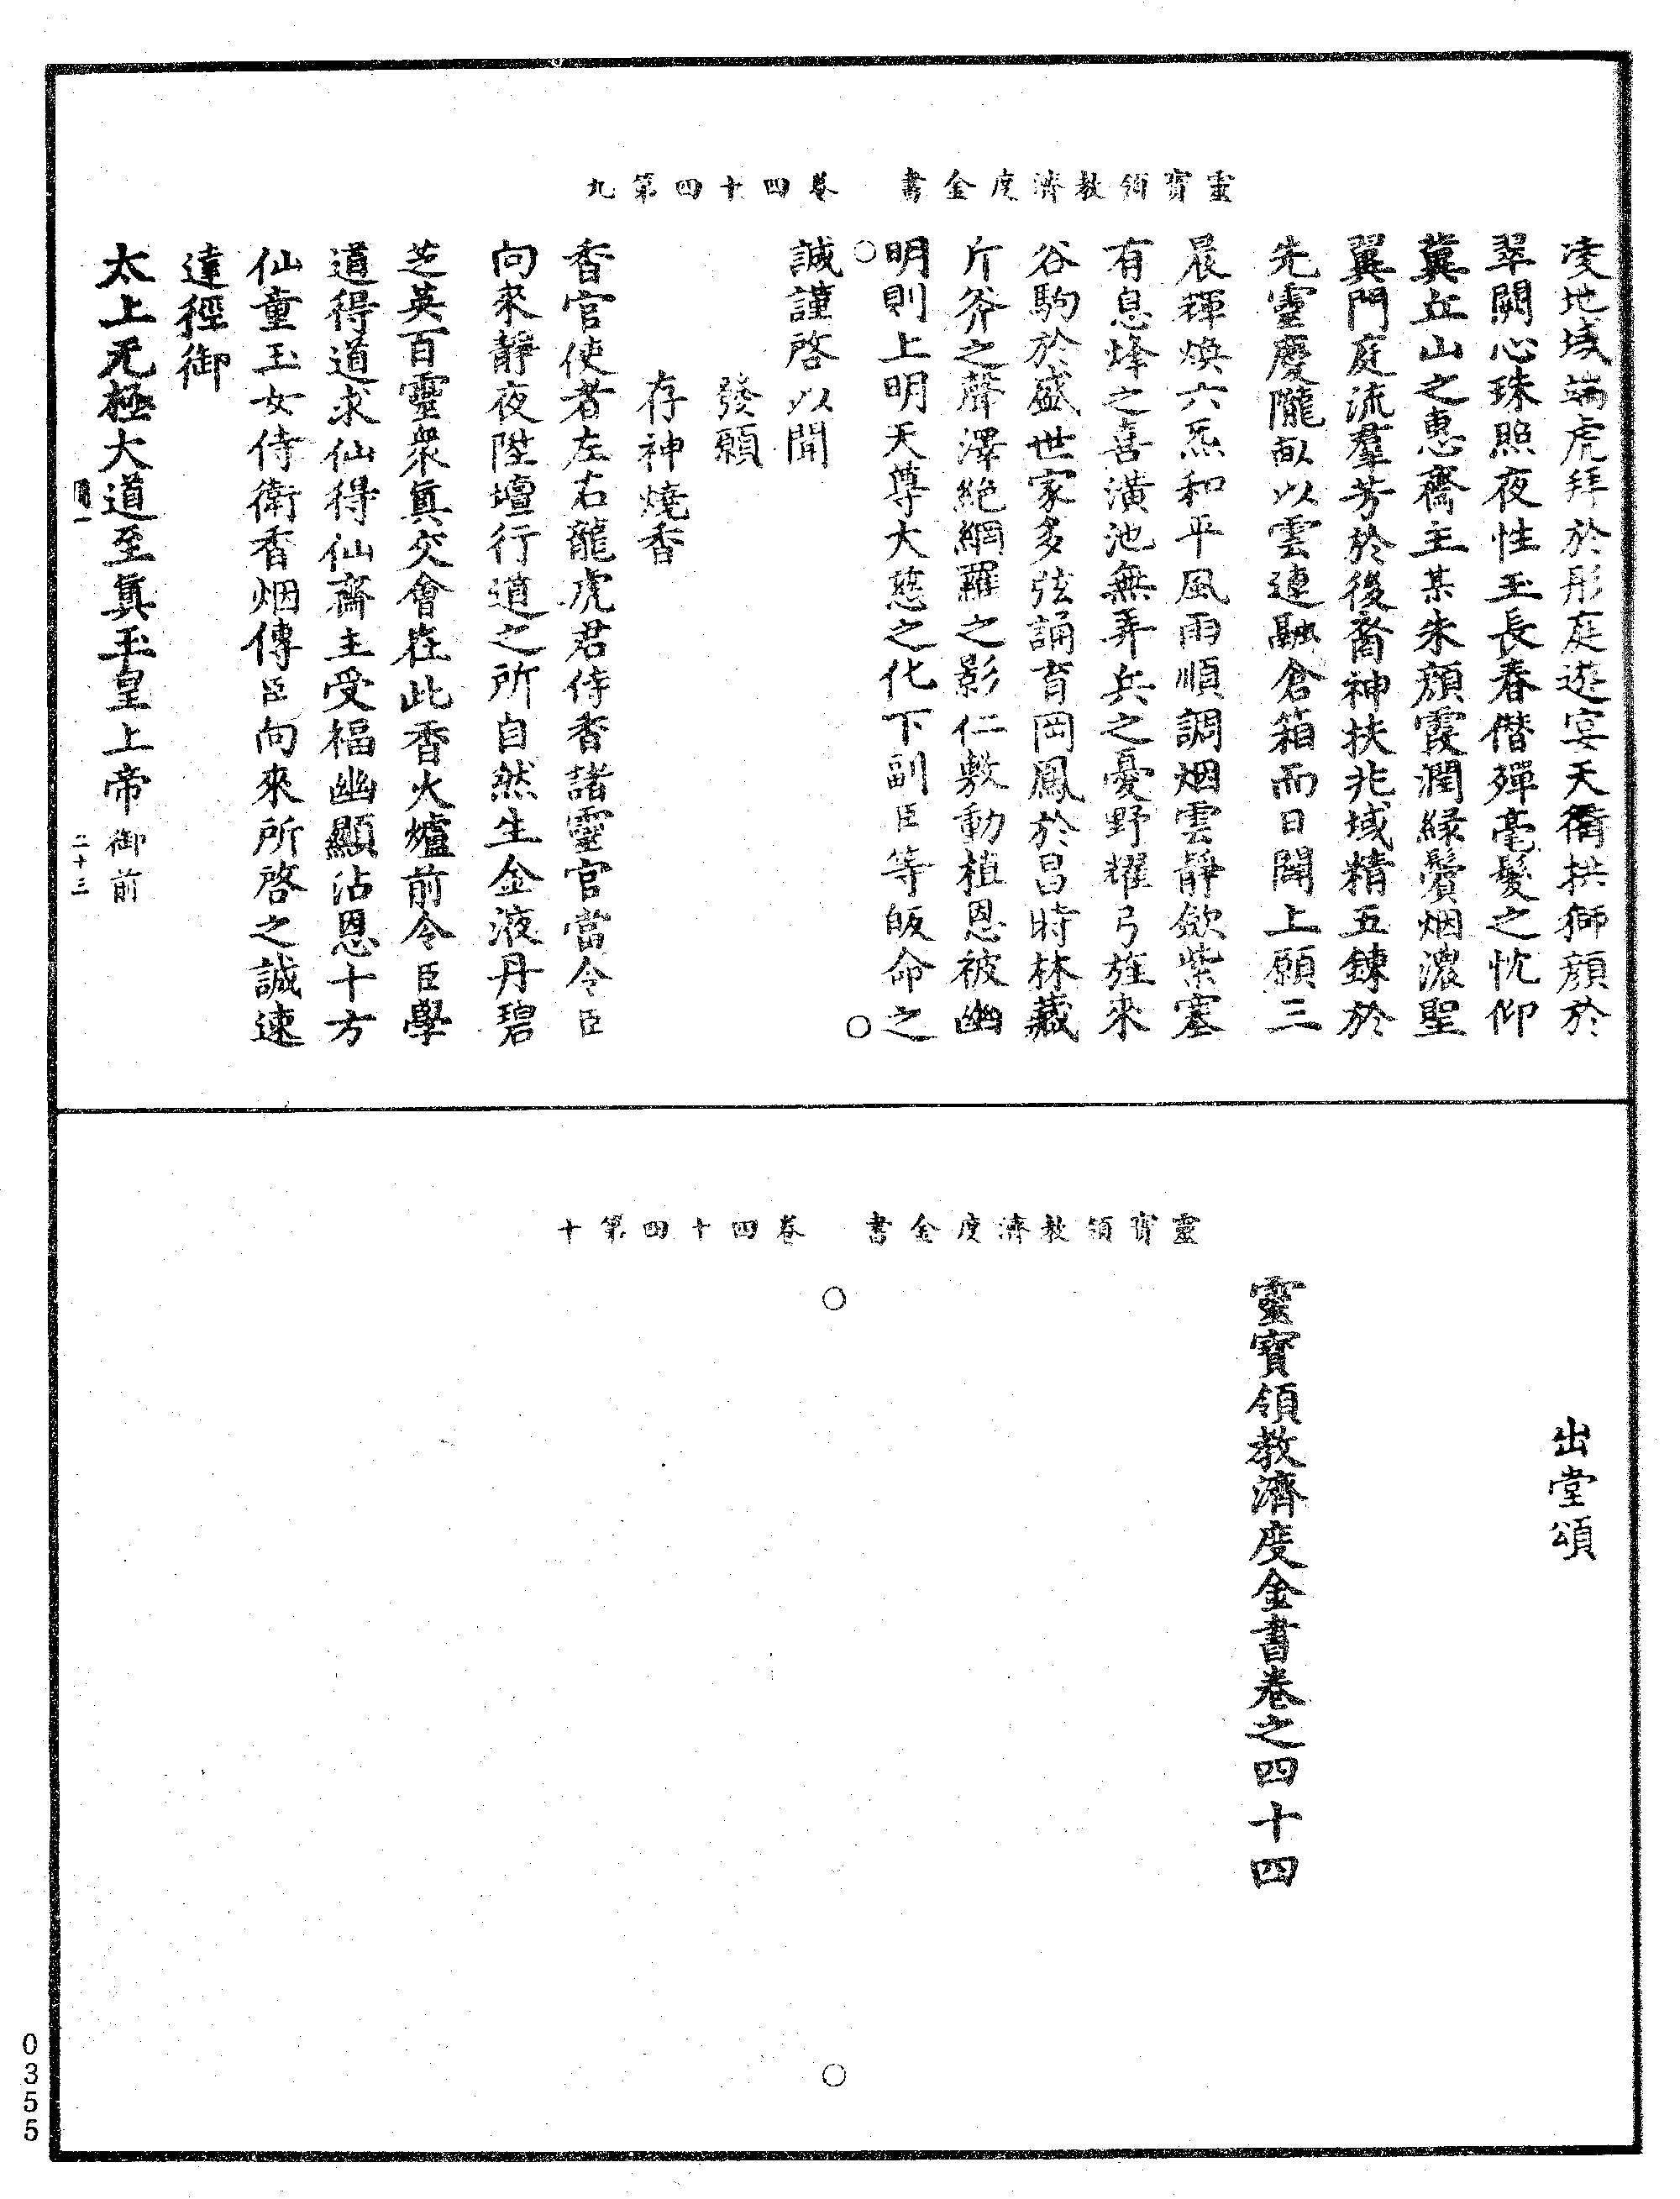 靈寶領教濟度金書　卷四十四第九
凌地域端虎拜於彤庭遊宴天衢拱獅顔於
翠闕心珠照夜性玉長春僭殫毫髮之忱仰
冀丘山之惠齋主某朱顔霞潤緑鬢烟濃聖
翼門庭流羣芳於後裔神扶兆域精五鍊於
先靈慶隴畝以雲連融倉箱而日闢上願三
晨輝煥六炁和平風雨順調烟雲靜歛紫塞
有息烽之喜潢池無弄兵之憂野耀弓旌來
谷駒於盛世家多弦誦育岡鳳於昌時林藏
斤斧之聲澤絶網羅之影仁敷動植恩被幽
明則上明天尊大慈之化下副臣等皈命之
誠謹啓以聞
發願
存神燒香
香官使者左右龍虎君侍香諸靈官當令臣
向來靜夜陞壇行道之所自然生金液丹碧
芝英百靈衆眞交會在此香火爐前令臣學
道得道求仙得仙齋主受福幽顯沾恩十方
仙童玉女侍衛香烟傳臣向來所啓之誠速
達徑御
太上无極大道至眞玉皇上帝御前
二十三
靈寶領教濟度金書　卷四十四第十
出堂頌
靈寶領教濟度金書卷之四十四
0355